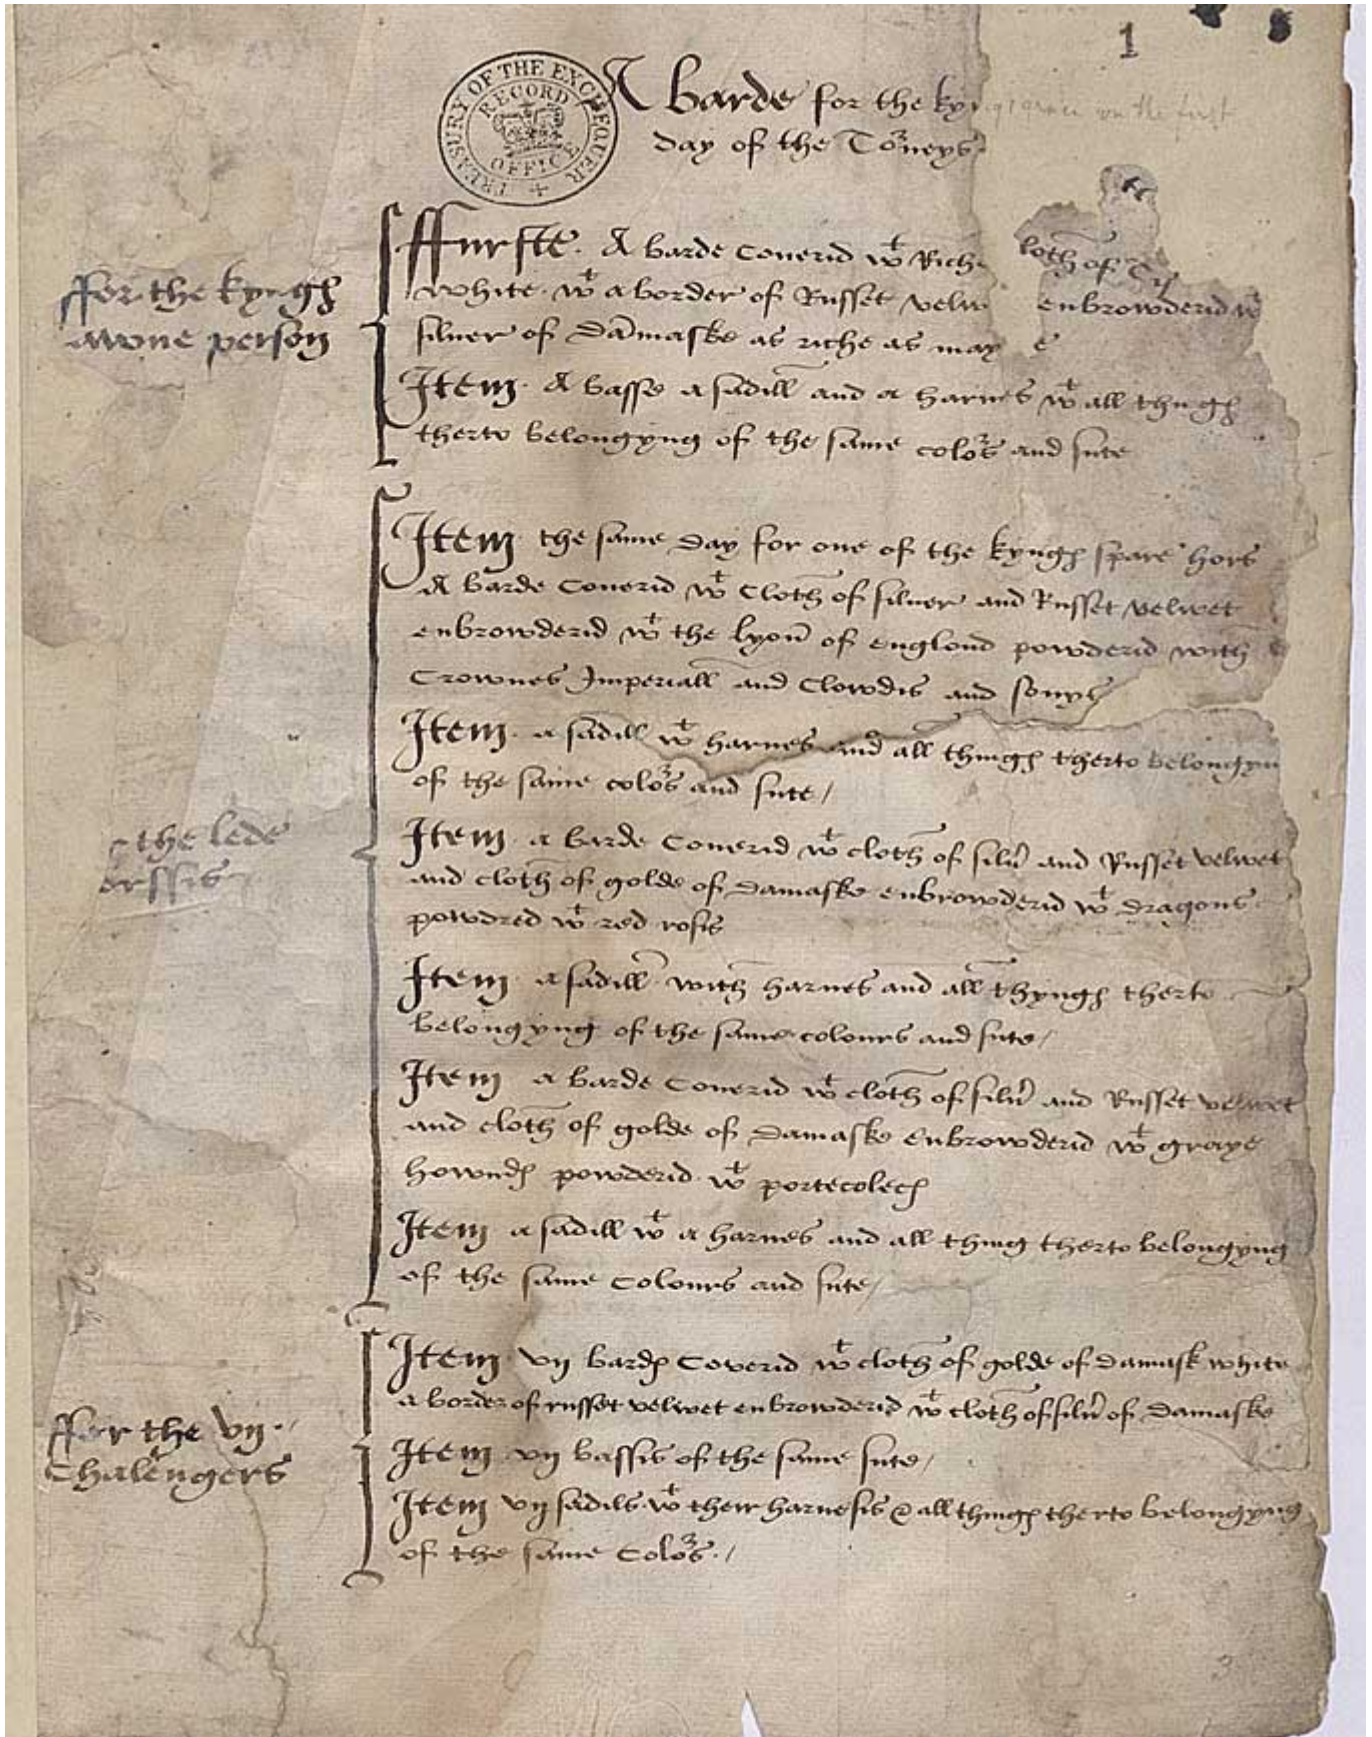 1
TREASURY OF THE EXCHEQUER
RECORD OFFICE
A barde for the ky on the first
day of the Torneys
ffor the kyngƺ
awne person
ffurste. A barde Couerid wt Riche loth of
white. wt a border of Russet velw enbrowderid wt
siluer of Damaske as riche as may e
Item. A basse a sadill and a harnes wt all thngƺ
therto belongyng of the same colors and sute
Item the same day for one of the kyngƺ spare hors
A barde Couerid wt Cloth of siluer and Russet velwet
enbrowderid wt the lyon of englond powderid with
Crownes Imperiall and Clowdis and sonys
Item. a sadill wt harnes and all thingƺ therto belongyn
of the same colors and sute /
the lede
orssis
Item. a barde Couerid wt cloth of silu and Russet velwet
and cloth of golde of Damaske enbrowderid wt dragons
powdred wt red rosis
Item. a sadill with harnes and all thyngƺ therto
belongyng of the same colours and sute /
Item a barde Couerid wt cloth of silu and Russet velwet
and cloth of golde of Damaske enbrowderid wt graye
howndƺ powderid wt portecolecƺ
Item a sadill wt a harnes and all thing therto belongyng
of the same Colours and sute /
ffor the vij.
Chalengers
Item vij bardƺ Coverid wt cloth of golde of damask white
a border of russet velwet enbrowderid wt cloth of silu of damaske
Item vij bassis of the same sute /
Item vij sadils wt their harnesis & all thingƺ therto belongyng
of the same Colors. /